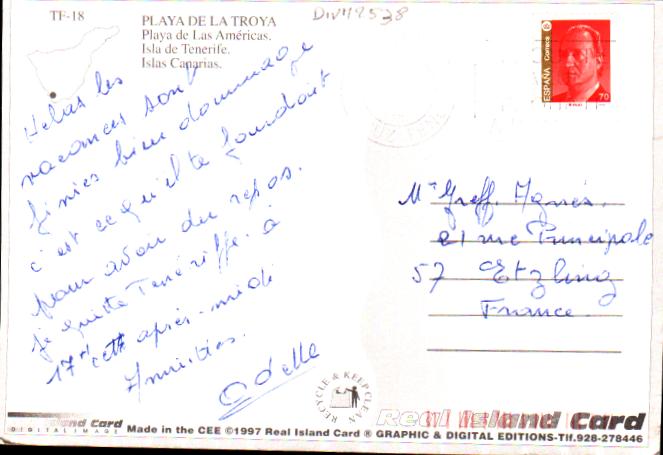 TF-18
PLAYA DE LA TROYA
Playa de Las Américas.
Isla de Tenerife.
Islas Canarias.
DIV49538
ESPAÑA
Correos
70
Helas les
vacances sont
finies bien dommage
c'est ce qu'il te faudrait
pour avoir du repos.
Je quitte Teneriffe à
17H cette après-midi
Amitiés.
Odette
Greff. Agnès.
21 rue Principale
57 Etzling
France.
RECYCLE & KEEP CLEAN
Real Island Card
Island Card
DIGITAL IMAGE
Made in the CEE ©1997 Real Island Card ® GRAPHIC & DIGITAL EDITIONS-Tlf.928-278446